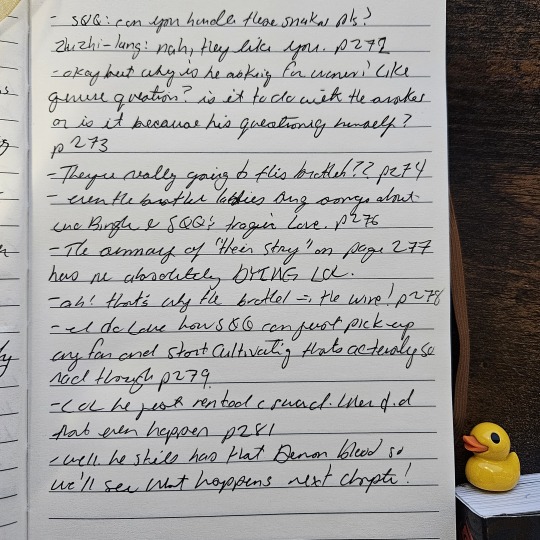 - SQQ: can you handle these snakes pls?
Zhuzhi-lang: nah, they like you. p272
- okay but why is he asking for women? Like
genuine question? is it to do with the snakes
or is it because his questioning himself?
p273
- They're really going to this brothel?? p274
- even the brothel ladies sing songs about
Bingh & SQQ's tragic love. p276
- The summary of "their story" on page 277
has me absolutely DYING LOL.
- ah! that's why the brothel = the wine! p278
- I do love how SQQ can just pick up
any fan and start cultivating thats acteraly so
rad though p279
- LOL he just rented a sword. When did
that even happen p281
- well he stills has that Demon blood so
we'll see what happens next chapter!